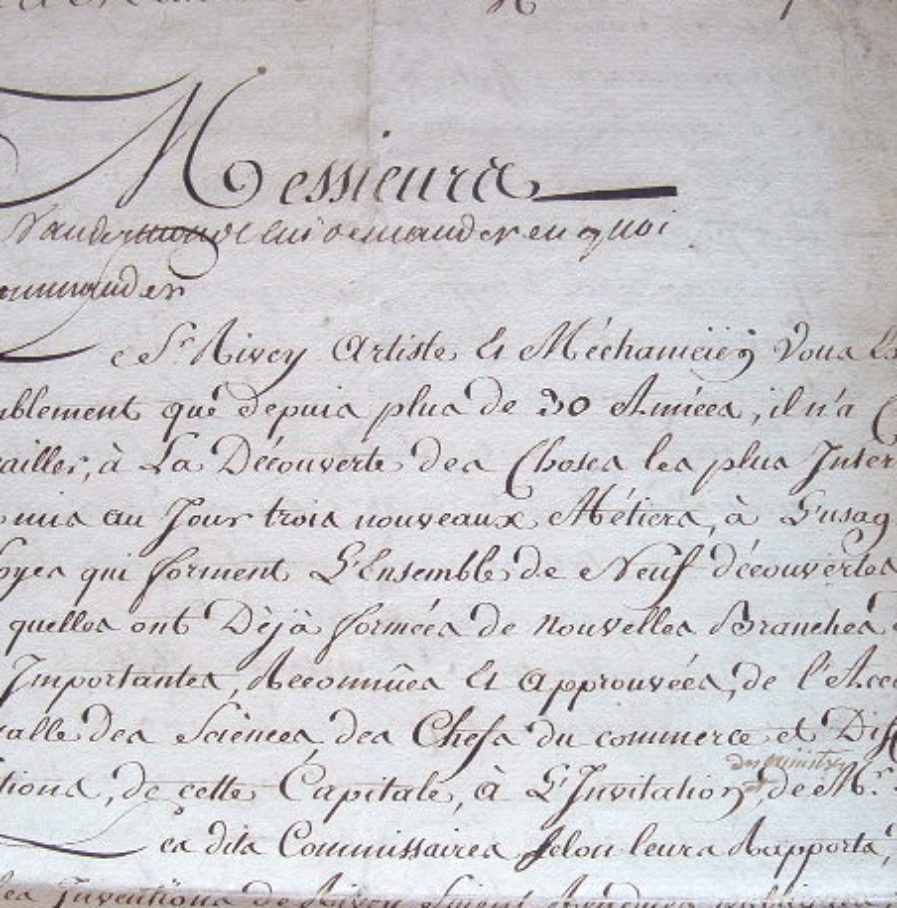 Messieurs
Vandermonde lui demander en quoi
ommander
Le Sr. Rivey Artiste Et Méchanicien Vous Ex
mblement que depuis plus de 30 Années, il n'a
ailler, à La Découverte des Choses les plus Inter
mis au Jour trois nouveaux Métiers, à L'usag
oyes qui forment L'Ensemble de Neuf découvertes
quelles ont Déjà formées de nouvelles Branches
Importantes, Reconnües Et approuvées, de l'Acc
yalle des Sciences, des Chefs du commerce et Dis
des ministres
tions, de cette Capitale, à L'Invitation, de Mr.
Les dits Commissaires selon leurs Rapports,
les Inventions de Rivey